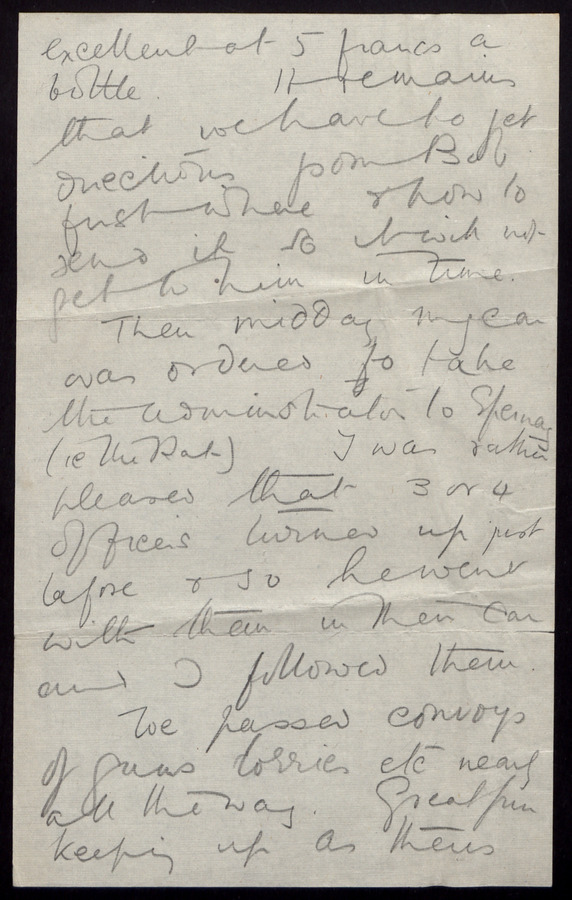 excellent at 5 francs a
bottle. It remains
that we have to get
directions from Bob
just where & how to
send it so it will not
get to him in time.
Then midday my car
was ordered to take
the administrator to Epernay
(ie the Rat) I was rather
pleased that 3 or 4
officers turned up just
before & so he went
with them in their car
and I followed them.
We passed convoys
of guns lorries etc nearly
all the way. Great fun
keeping up as theirs